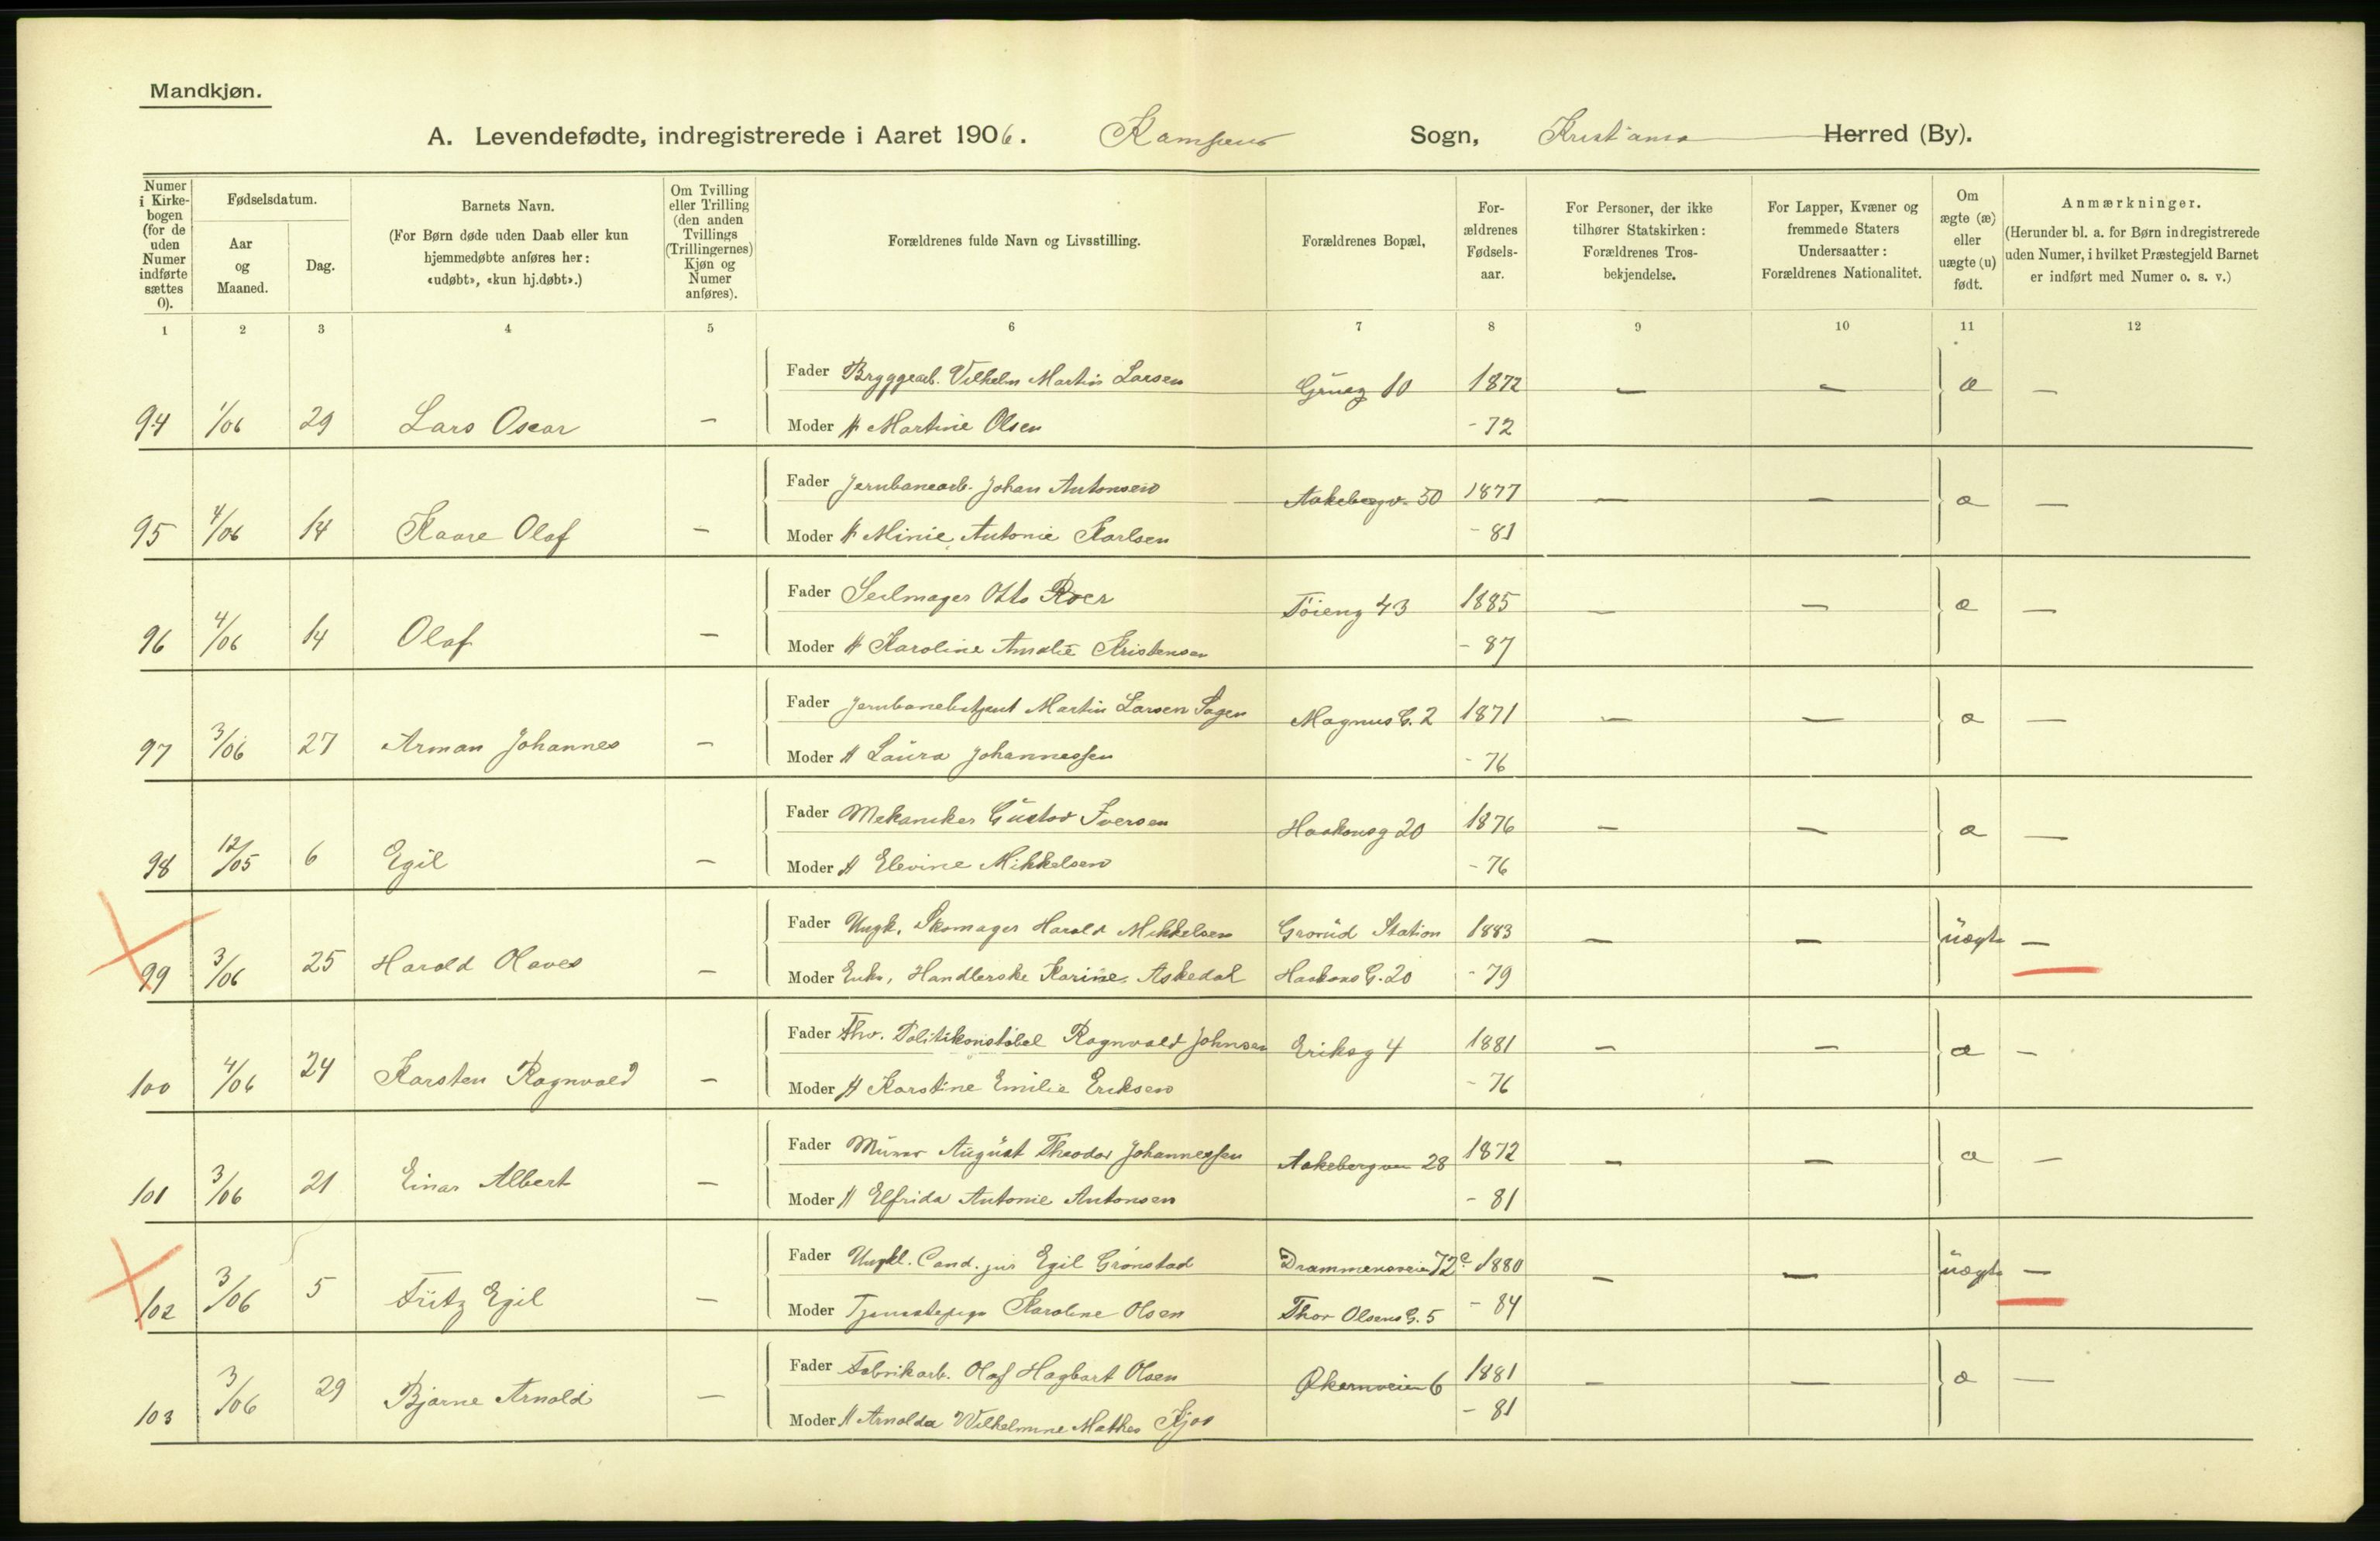 Mandkjøn.
A. Levendefødte, indregistrerede i Aaret 1906. Kampens Sogn, Kristiania Herred (By).
Numer i Kirkebogen (for de uden Numer indførte sættes 0).
Fødselsdatum.
Aar og Maaned.
Dag.
Barnets Navn.
(For Børn døde uden Daab eller kun hjemmedøbte anføres her: «udøbt», «kun hj.døbt».)
Om Tvilling eller Trilling (den anden Tvillings (Trillingernes) Kjøn og Numer anføres).
Forældrenes fulde Navn og Livsstilling.
Forældrenes Bopæl,
Forældrenes Fødselsaar.
For Personer, der ikke tilhører Statskirken: Forældrenes Trosbekjendelse.
For Lapper, Kvæner og fremmede Staters Undersaatter: Forældrenes Nationalitet.
Om ægte (æ) eller uægte (u) født.
Anmærkninger.
(Herunder bl. a. for Børn indregistrerede uden Numer, i hvilket Præstegjeld Barnet er indført med Numer o. s. v.)
1 2 3 4 5 6 7 8 9 10 11 12
Fader Bryggearb. Vilhelm Martin Larsen Grueg 10 1872 — — æ —
94 1/06 29 Lars Oscar — Moder H Martine Olsen - 72
Fader Jernbanearb. Johan Antonsen Aakebergv. 50 1877 — — æ —
95 4/06 14 Kaare Olaf — Moder H Minie Antonie Karlsen - 81
Fader Seilmager Otto Roer Tøieng 43 1885 — — æ —
96 4/06 14 Olaf — Moder H Karoline Amalie Kristensen - 87
Fader Jernbanebetjent Martin Larsen Sagen Magnus G. 2 1871 — — æ —
97 3/06 27 Arman Johannes — Moder H Laura Johannessen - 76
Fader Mekaniker Gustav Iversen Haakonsg 20 1876 — — æ —
98 12/05 6 Egil — Moder H Elevine Mikkelsen - 76
Fader Ungk. Skomager Harald Mikkelsen Grorud Station 1883 — — uægte —
99 3/06 25 Harald Olaves — Moder Enke, Handlerske Karine Askedal Haakons G. 20 - 79
Fader Fhv. Politikonstabel Ragnvald Johnsen Eriksg 4 1881 — — æ —
100 4/06 24 Karsten Ragnvald — Moder H Karstine Emilie Eriksen - 76
Fader Murer August Theodor Johannessen Aakebergvn 28 1872 — — æ —
101 3/06 21 Einar Albert — Moder H Elfrida Antonie Antonsen - 81
Fader Ungkl. Cand. jur Egil Grønstad Drammensveien 72c 1880 — — uægte —
102 3/06 5 Fritz Egil — Moder Tjenestepige Karoline Olsen Thor Olsens G. 5 - 84
Fader Fabrikarb. Olaf Hagbart Olsen Økernveien 6 1881 — — æ —
103 3/06 29 Bjarne Arnold — Moder H Arnolda Wilhelmine Mathea Kjos - 81